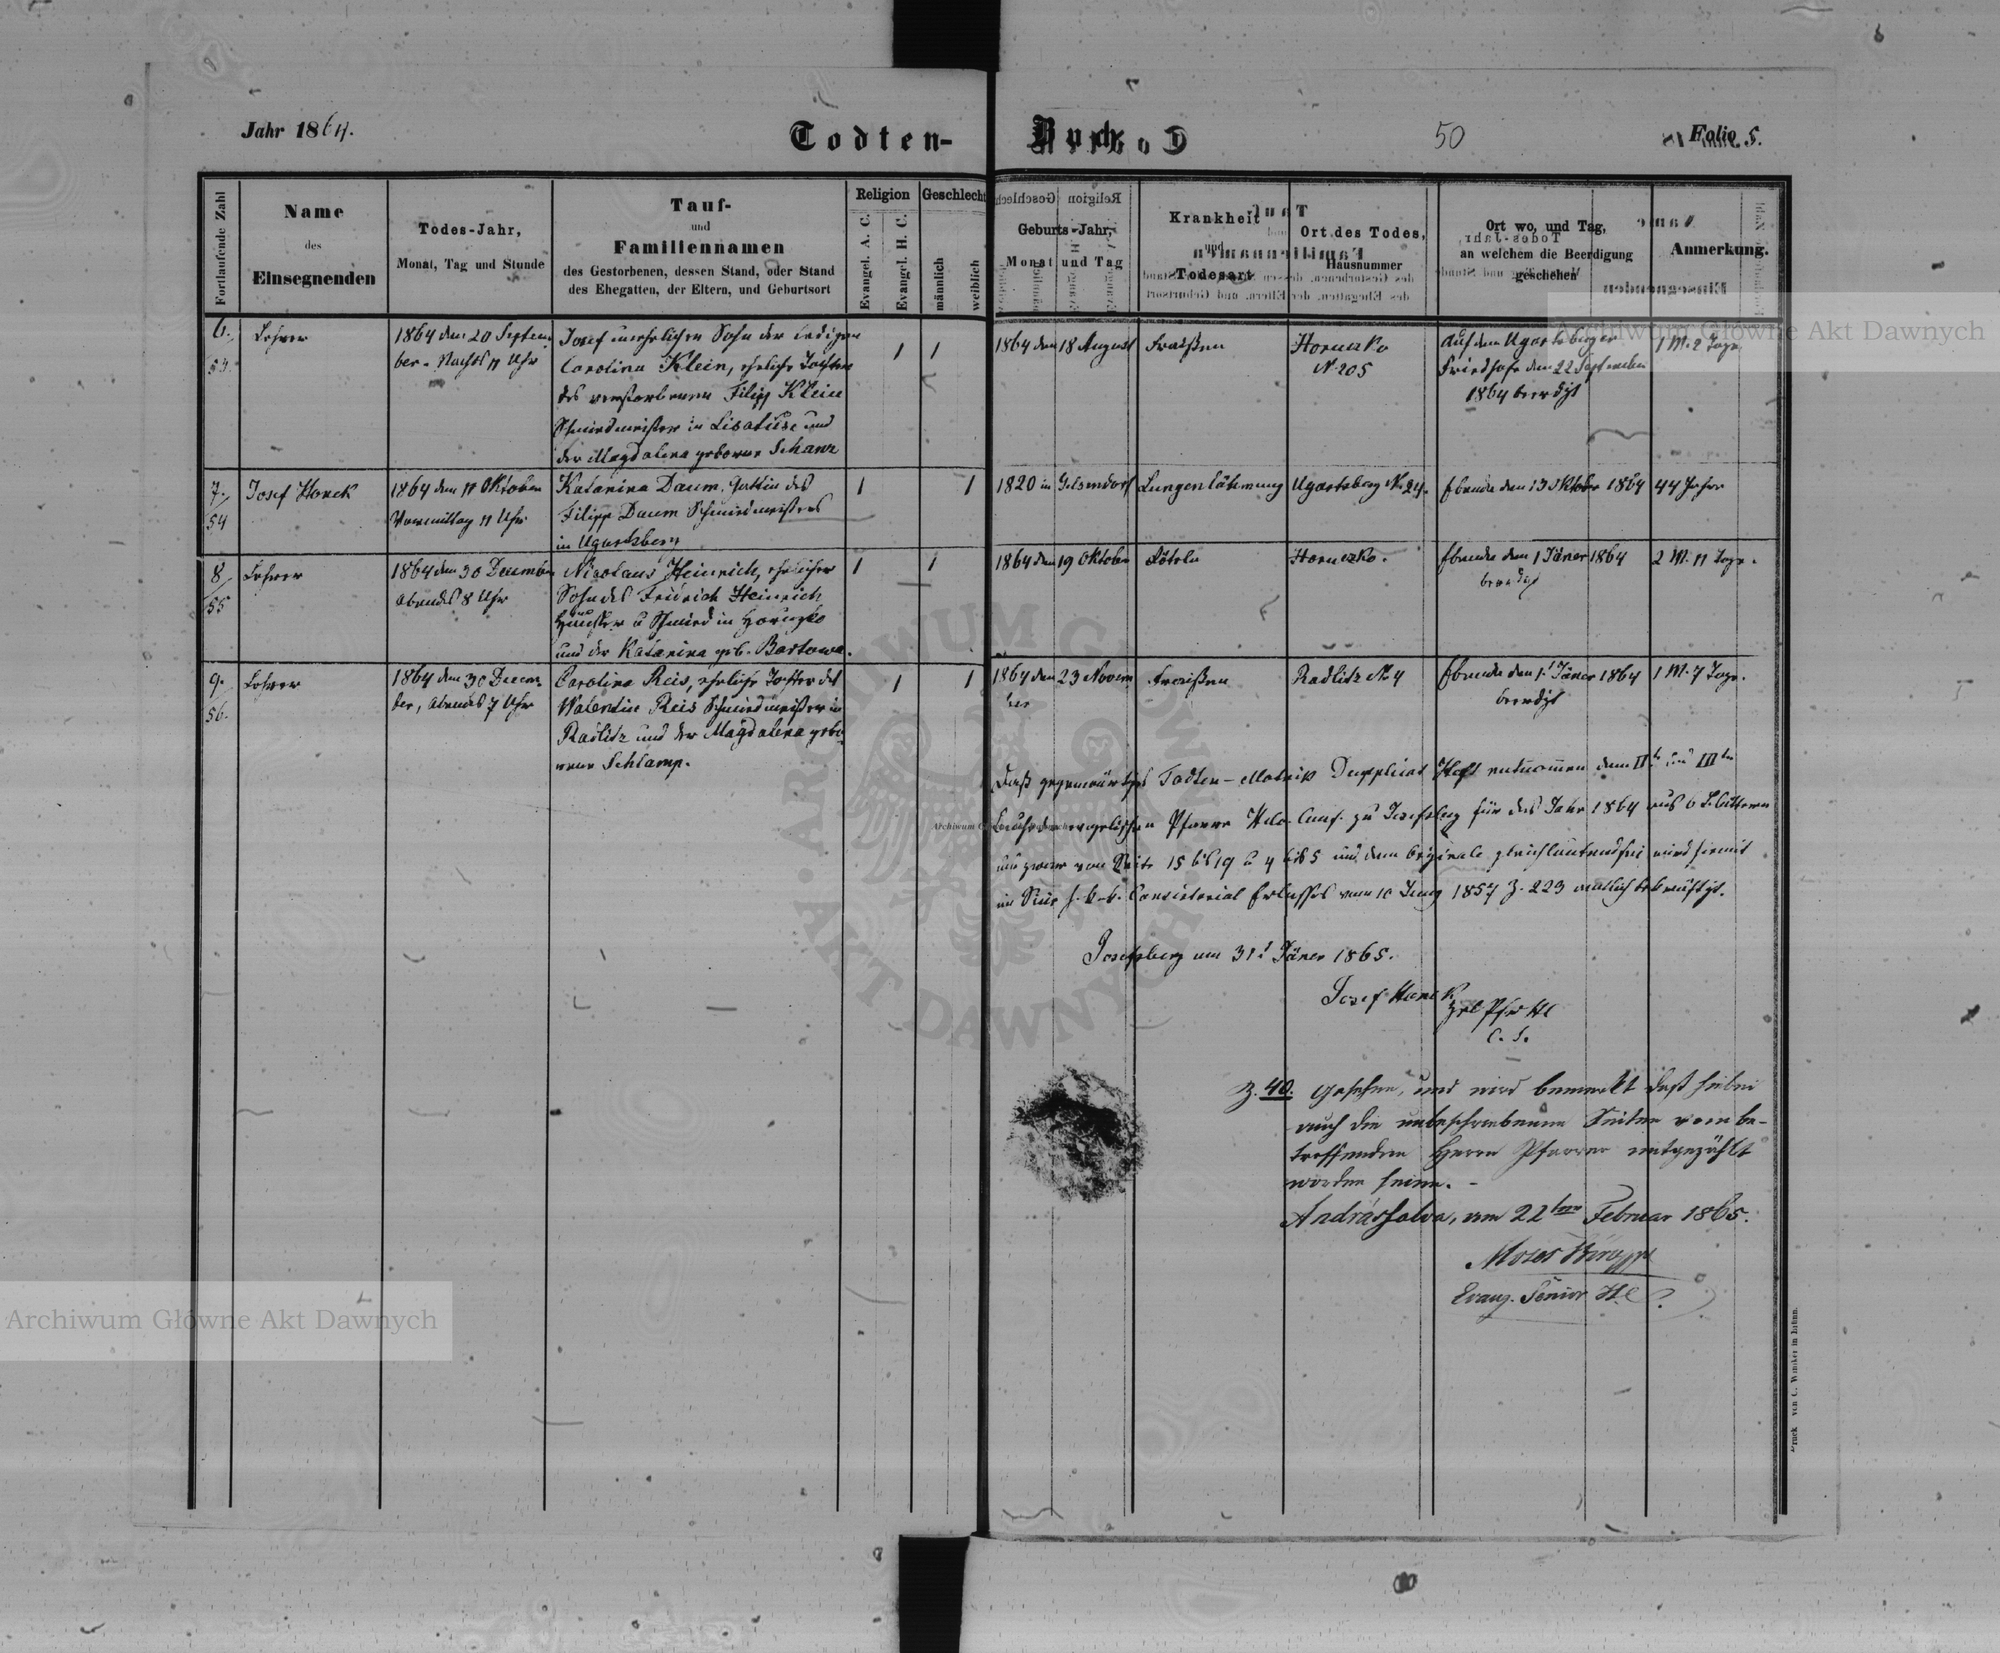 Jahr 1864.
Todten-Buch
50
Folio 5.
Fortlaufende Zahl
Name
des
Einsegnenden
Todes-Jahr,
Monat, Tag und Stunde
Tauf-
und
Familiennamen
des Gestorbenen, dessen Stand, oder Stand
des Ehegatten, der Eltern, und Geburtsort
Religion
Evangel. A. C.
Evangel. H. C.
Geschlecht
männlich
weiblich
Geburts-Jahr,
Monat und Tag
Krankheit
Todesart
Ort des Todes,
Hausnummer
Ort wo, und Tag,
an welchem die Beerdigung
geschehen
Anmerkung.
6.
53.
Lehrer
1864 den 20 Septem
ber. Nachts 11 Uhr
Josef unehelicher Sohn der ledigen
Carolina Klein, eheliche Tochter
des verstorbenen Filipp Klein
Schmiedmeister in
und
der Magdalena geborne Schanz
1
1
1864 den 18 August
Fraißen
Horucko
N. 205
Auf dem Ugartsberger
Friedhofe den 22 September
1864 beerdigt
1 M. 2 Tage
7.
54
Josef Hanek
1864 den 11 Oktober
Vormittag 11 Uhr
Katarina Daum, Gattin des
Filipp Daum Schmiedmeisters
in Ugartsberg
1
1
1820 in Gelsendorf
Lungenlähmung
Ugartsberg N. 24.
Ebenda den 13 Oktober 1864
44 Jahre
8
55
Lehrer
1864 den 30 Dezember
Abends 8 Uhr
Nicolaus Heinrich, ehelicher
Sohn des Fridrich Heinrich
Häusler u Schmied in Horuzko
und der Katarina geb. Bartowa.
1
1
1864 den 19 Oktober
Röteln
Horuczko.
Ebenda den 1 Jäner 1864
beerdigt
2 M. 11 Tage.
9.
56.
Lehrer
1864 den 30 Decem-
ber, Abends 7 Uhr
Carolina Reis, eheliche Tochter des
Walentin Reis Schmiedmeister in
Radlitz und der Magdalena gebo
rene Schlamp.
1
1
1864 den 23 Novem
ber
Fraißen
Radlitz N. 4
Ebenda den 1t Jäner 1864
beerdigt
1 M. 7 Tage.
Daß gegenwärtiges Todten-Matrik Dupplicat Heft entnommen dem IIte und IIIte
Buche der evangelischen Pfarre Helv. Conf. zu Josefsberg für das Jahr 1864 aus 6 Blättern
und zwar von Seite 15 bis 19 u 4 bis 5 und dem Originale gleichlautend sei wird hiemit
im Sinne h. k. k. Consistorial Erlasses vom 10 Juny 1857 Z. 223 amtlich bekräftigt.
Josefsberg am 31t Jäner 1865.
Josef Hanek
Pfr HC
Z. 40. Gesehen, und wird bemerkt daß hiebei
auch die unbeschriebenen Seiten vom be-
treffenden Herrn Pfarrer mitgezählt
worden seien. -
Andrásfalva, am 22ten Februar 1865.
Moses
Evang. Senior H.C.
Druck von C. Winiker in Brünn.
Archiwum Główne Akt Dawnych
Archiwum Główne Akt Dawnych
Archiwum Główne Akt Dawnych
ARCHIWUM GŁÓWNE AKT DAWNYCH